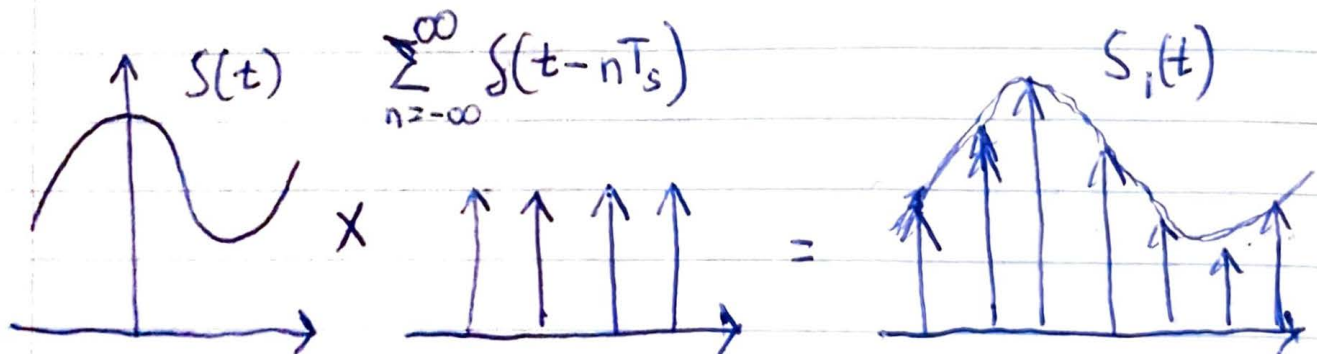 S(t) ∑_{n=-∞}^{∞} δ(t-nT_s) S_i(t)
× =